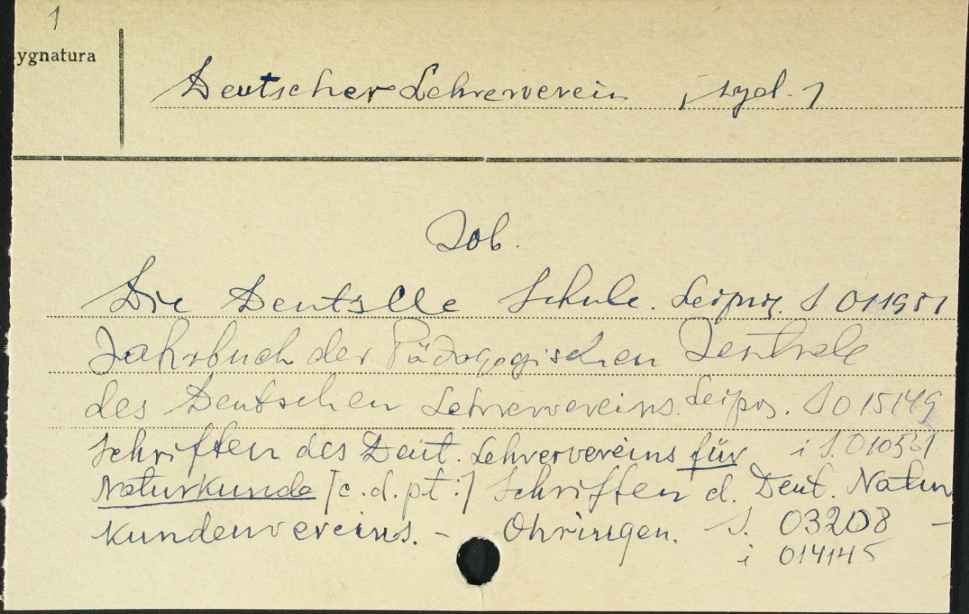 1
ygnatura
Deutscher Lehrerverein , wyd. 1
Zob.
Die Deutsche Schule. Leipzig. S 011951
Jahrbuch der Pädagogischen Zentrale
des Deutschen Lehrervereins. Leipz. S 015149
Schriften des Deut. Lehrervereins für i S. 010531
Naturkunde [c.d.pt:] Schriften d. Deut. Natur
kundenvereins. - Ohringen. S. 03208 -
i 014145